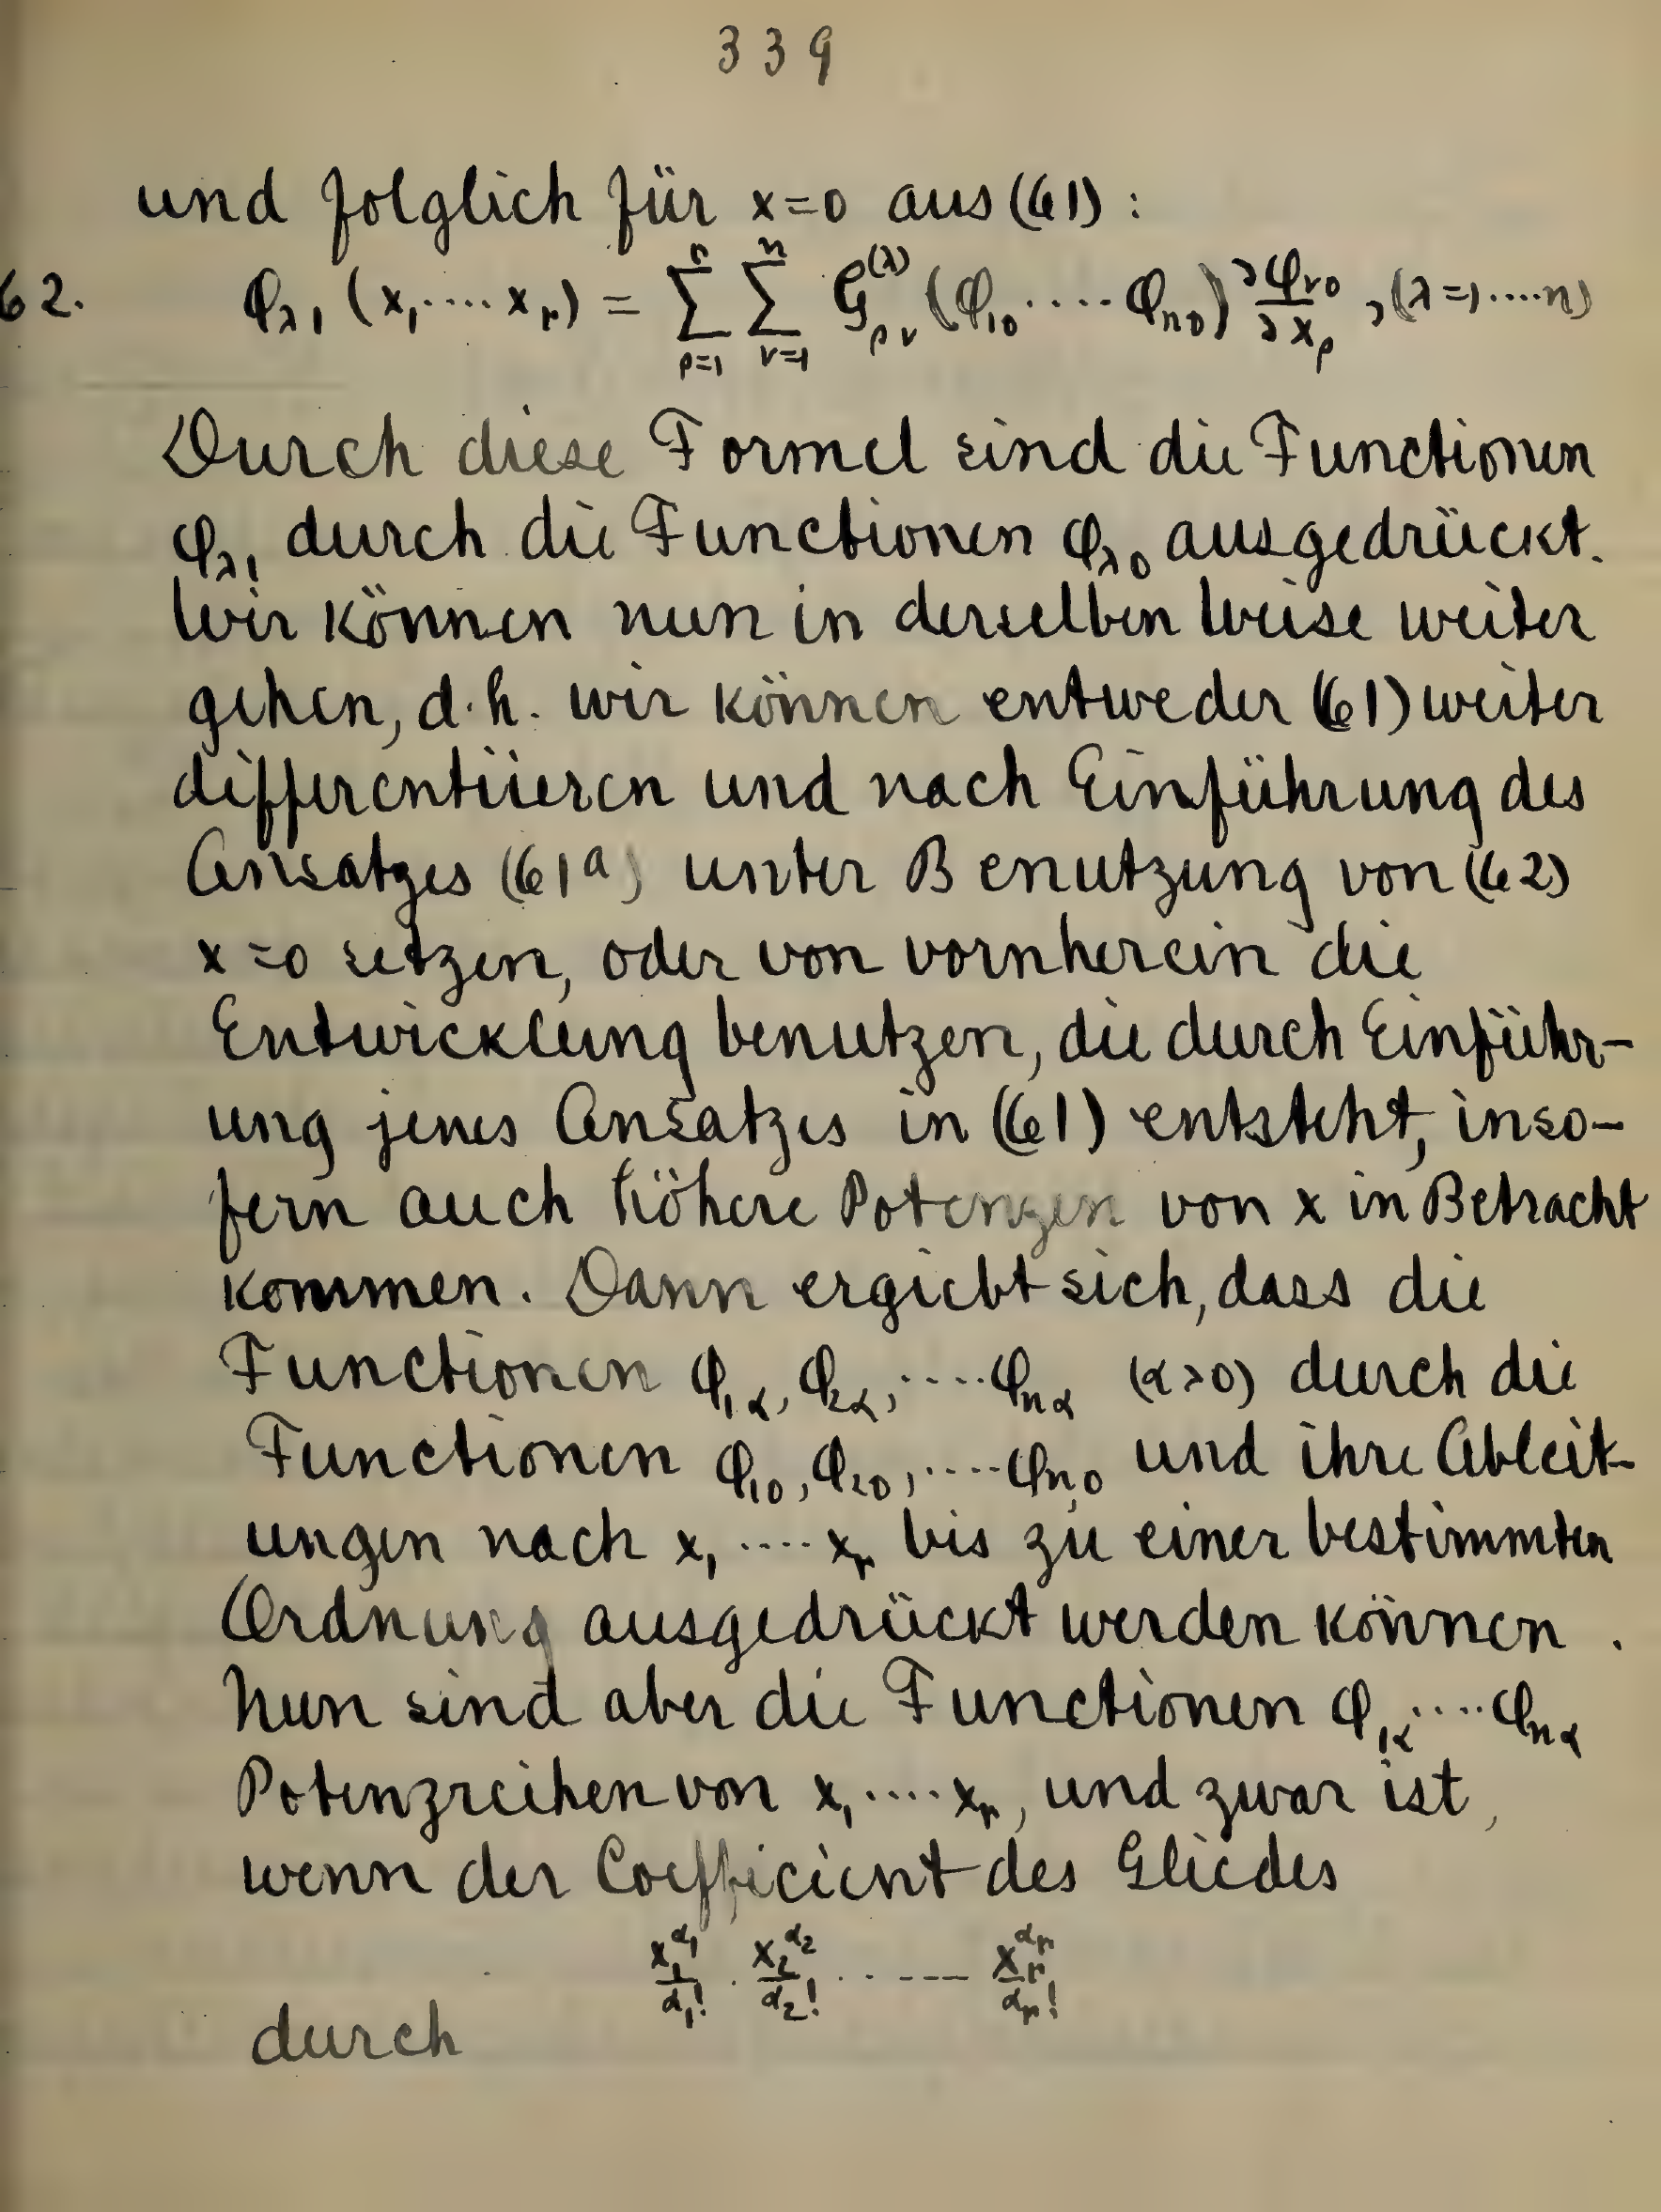 339
und folglich für x=0 aus (61):
62. φ_{λ1} (x_1....x_r) = \sum_{ρ=1}^{r} \sum_{ν=1}^{n} G_{ρν}^{(λ)} (φ_{10}.....φ_{n0}) \frac{∂φ_{ν0}}{∂x_ρ}, (λ=1....n)
Durch diese Formel sind die Functionen
φ_{λ1} durch die Functionen φ_{λ0} ausgedrückt.
Wir können nun in derselben Weise weiter
gehen, d.h. wir können entweder (61) weiter
differentiieren und nach Einführung des
Ansatzes (61a) unter Benutzung von (62)
x=0 setzen, oder von vornherein die
Entwicklung benutzen, die durch Einführ-
ung jenes Ansatzes in (61) entsteht, inso-
fern auch höhere Potenzen von x in Betracht
kommen. Dann ergiebt sich, dass die
Functionen φ_{1α}, φ_{2α},....φ_{nα} (α>0) durch die
Functionen φ_{10}, φ_{20},....φ_{n,0} und ihre Ableit-
ungen nach x_1....x_r bis zu einer bestimmten
Ordnung ausgedrückt werden können.
Nun sind aber die Functionen φ_{1α}....φ_{nα}
Potenzreihen von x_1....x_r, und zwar ist,
wenn der Coefficient des Gliedes
\frac{x_1^{α_1}}{α_1!} . \frac{x_2^{α_2}}{α_2!} ..---- \frac{x_r^{α_r}}{α_r!}
durch